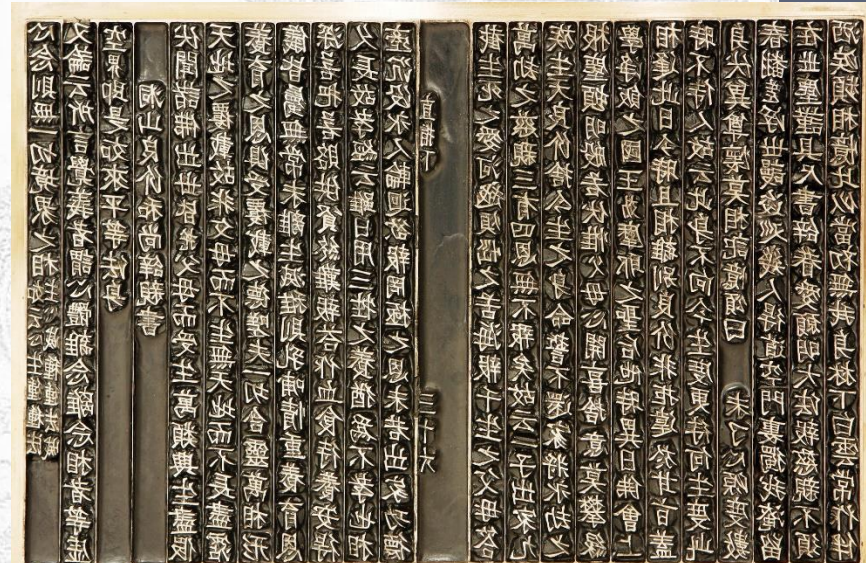 心念則無一切境界之相
又論云所言覺義者謂心體離念離念相者等虛
空界即是如來平等法身
洞山良价和尚辭親書
伏聞諸佛出世皆從父母而受生萬類興生盡假
天地之覆載故非父母而不生無天地而不長盡霑
養育之恩俱受覆載之德嗟夫一切含靈萬相形
儀皆屬無常未離生滅稚則乳哺情重養育恩
深若把若賂供資終難報荅作血食侍養安得
久長故孝經云雖日用三牲之養猶爲不孝也相
牽沉沒永入輪迴欲報罔極之恩未若出家功德
直指下 三十六
截生死之愛河越煩惱之苦海報千生之父母荅
萬劫之慈親三有四恩無不報矣故云一子出家九
族生天良价捨今生之身命誓不還家將永劫之
根塵頓明般若伏惟父母心開喜捨意莫攀緣
學淨飯之國王爲摩耶之聖后他時異日佛會上
相逢此日今時且相離別良价非拒違於甘旨蓋
時不待人故云此身不向今生度更待何生度此
身伏冀尊懷莫相記憶頌曰 未了心源度數
春翻嗟浮世謾逡巡幾人得道空門裏獨我淹留
在世塵謹具尺書辭眷愛願明大法報慈親不須
洒淚頻相憶比似當初無我身林下白雲常作伴